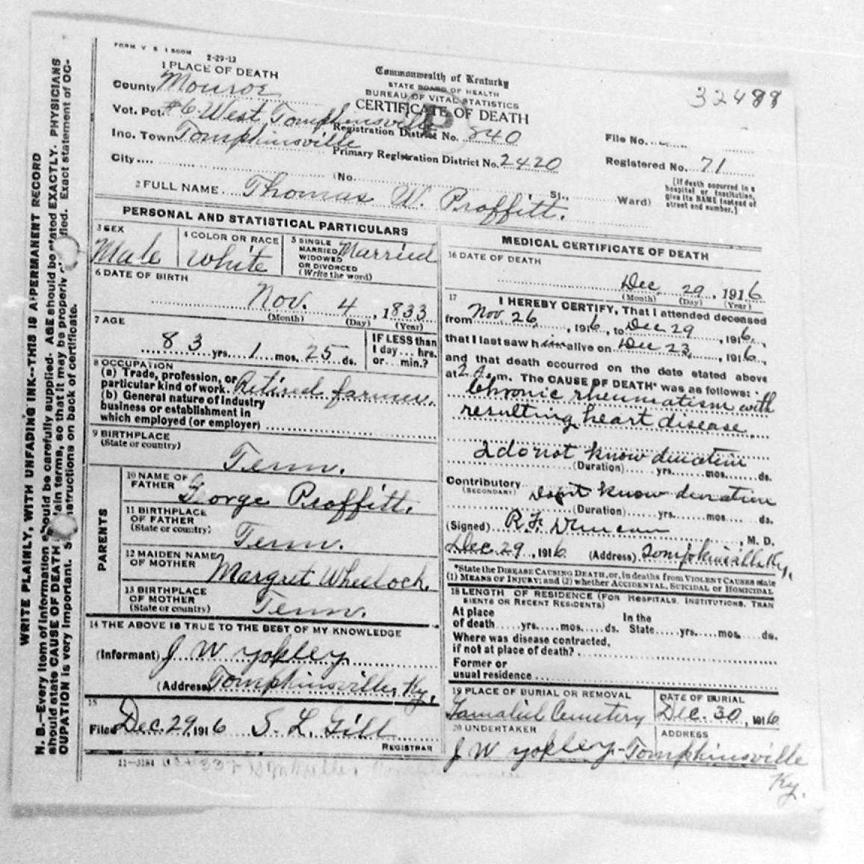 FORM V. S. 1 500M 2-29-12
1 PLACE OF DEATH
County Monroe
Vot. Pct. #6 West Tompkinsville
Inc. Town Tompkinsville
City
Commonwealth of Kentucky
STATE BOARD OF HEALTH
BUREAU OF VITAL STATISTICS
CERTIFICATE OF DEATH
Registration District No. 840
Primary Registration District No. 2420
(No. St., Ward)
32488
File No.
Registered No. 71
(If death occurred in a hospital or institution, give its NAME instead of street and number.)
2 FULL NAME Thomas W. Proffitt.
PERSONAL AND STATISTICAL PARTICULARS
3 SEX Male
4 COLOR OR RACE White
5 SINGLE MARRIED WIDOWED OR DIVORCED (Write the word) Married
6 DATE OF BIRTH
Nov. 4, 1833
(Month) (Day) (Year)
7 AGE
83 yrs. 1 mos. 25 ds.
IF LESS than 1 day... hrs. or... min.?
8 OCCUPATION
(a) Trade, profession, or particular kind of work. Retired farmer.
(b) General nature of industry business or establishment in which employed (or employer)
9 BIRTHPLACE
(State or country) Tenn.
PARENTS
10 NAME OF FATHER George Proffitt.
11 BIRTHPLACE OF FATHER (State or country) Tenn.
12 MAIDEN NAME OF MOTHER Margret Wheelock.
13 BIRTHPLACE OF MOTHER (State or country) Tenn.
14 THE ABOVE IS TRUE TO THE BEST OF MY KNOWLEDGE
(Informant) J W Yokley
(Address) Tompkinsville, Ky.
15
Filed Dec. 29, 1916 S. L. Gill
REGISTRAR
11-3184
MEDICAL CERTIFICATE OF DEATH
16 DATE OF DEATH
Dec 29, 1916
(Month) (Day) (Year)
17 I HEREBY CERTIFY, That I attended deceased
from Nov 26, 1916, to Dec 29, 1916,
that I last saw him alive on Dec 23, 1916,
and that death occurred on the date stated above
at 2 A. m. The CAUSE OF DEATH* was as follows:
Chronic rheumatism with
resulting heart disease
I do not know duration
(Duration) yrs. mos. ds.
Contributory (SECONDARY) Dont know duration
(Duration) yrs. mos. ds.
(Signed) R. F. Duncan, M. D.
Dec. 29, 1916 (Address) Tompkinsville Ky.
*State the DISEASE CAUSING DEATH, or, in deaths from VIOLENT CAUSES state
(1) MEANS OF INJURY; and (2) whether ACCIDENTAL, SUICIDAL or HOMICIDAL
18 LENGTH OF RESIDENCE (FOR HOSPITALS, INSTITUTIONS, TRANSIENTS OR RECENT RESIDENTS)
At place of death yrs. mos. ds. In the State yrs. mos. ds.
Where was disease contracted,
if not at place of death?
Former or
usual residence
19 PLACE OF BURIAL OR REMOVAL Gamaliel Cemetery
DATE OF BURIAL Dec. 30, 1916
20 UNDERTAKER J W Yokley
ADDRESS Tompkinsville Ky.
WRITE PLAINLY, WITH UNFADING INK--THIS IS A PERMANENT RECORD
N. B.--Every item of information should be carefully supplied. AGE should be stated EXACTLY. PHYSICIANS
should state CAUSE OF DEATH in plain terms, so that it may be properly classified. Exact statement of OC-
CUPATION is very important. See instructions on back of certificate.